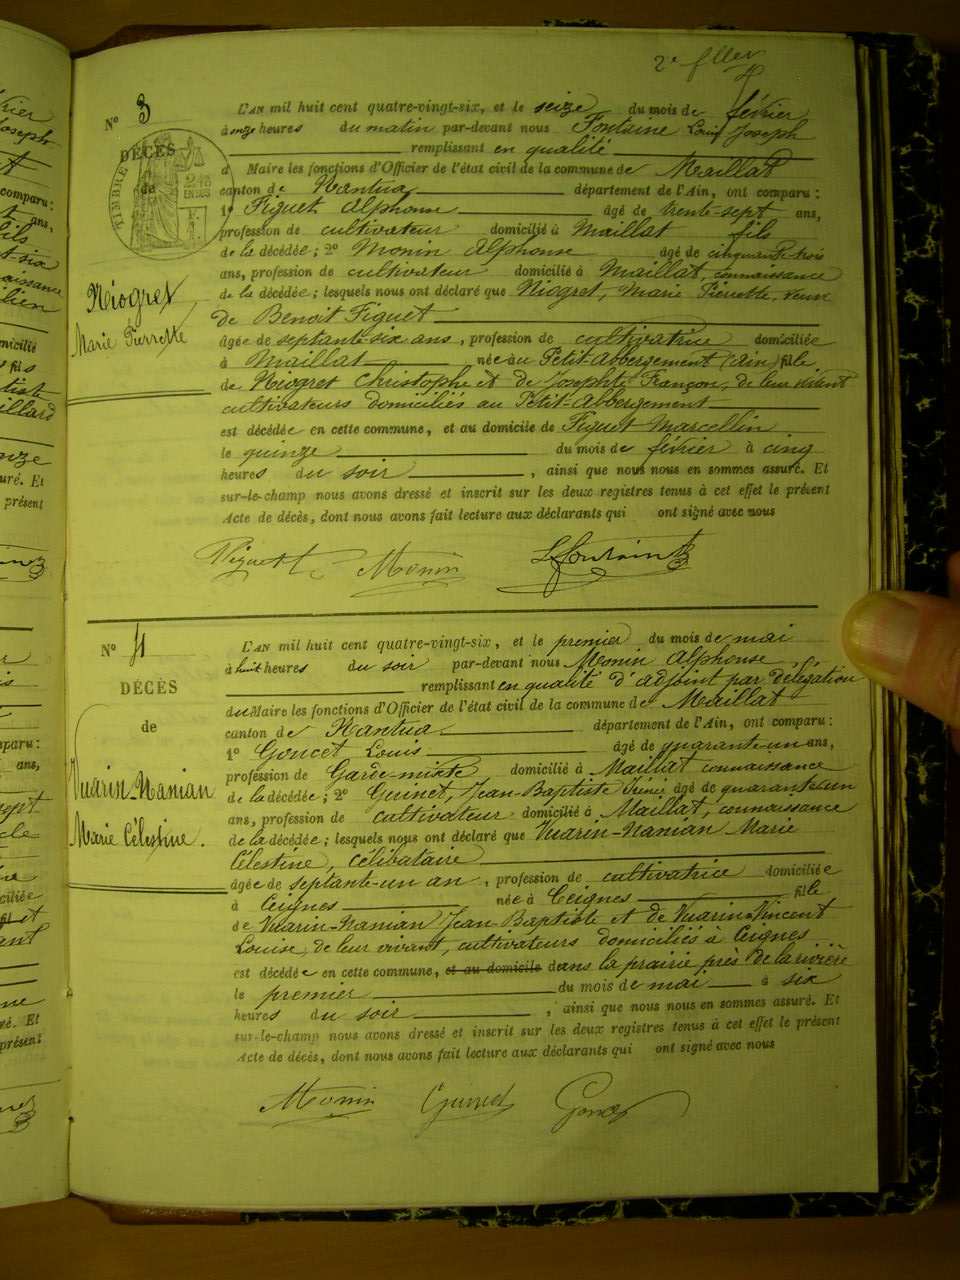 2e fllet
N° 3
DÉCÈS
de
TIMBRE
Niogret
Marie Pierrette
L'AN mil huit cent quatre-vingt-six, et le seize du mois de février
à onze heures du matin par-devant nous Fontaine Louis Joseph
remplissant en qualité
d Maire les fonctions d'Officier de l'état civil de la commune de Maillat
canton de Nantua département de l'Ain, ont comparu :
1° Figuet Alphonse âgé de trente-sept ans,
profession de cultivateur domicilié à Maillat fils
de la décédée ; 2° Monin Alphonse âgé de cinquante trois
ans, profession de cultivateur domicilié à Maillat, connaissance
de la décédée ; lesquels nous ont déclaré que Niogret, Marie Pierrette, veuve
de Benoit Figuet
âgée de septante-six ans, profession de cultivatrice domiciliée
à Maillat née au Petit-Abbergement (Ain) fille
de Niogret Christophe et de Josephte Françon, de leur vivant
cultivateurs domiciliés au Petit-Abbergement
est décédée en cette commune, et au domicile de Figuet Marcellin
le quinze du mois de février à cinq
heures du soir, ainsi que nous nous en sommes assuré. Et
sur-le-champ nous avons dressé et inscrit sur les deux registres tenus à cet effet le présent
Acte de décès, dont nous avons fait lecture aux déclarants qui ont signé avec nous
Figuet Monin L Fontaine
N° 4
DÉCÈS
de
Vuarin-Namian
Marie Célestine.
L'AN mil huit cent quatre-vingt-six, et le premier du mois de mai
à huit heures du soir par-devant nous Monin Alphonse,
remplissant en qualité d'adjoint par délégation
du Maire les fonctions d'Officier de l'état civil de la commune de Maillat
canton de Nantua département de l'Ain, ont comparu :
1° Goucet Louis âgé de quarante-un ans,
profession de Garde-mixte domicilié à Maillat connaissance
de la décédée ; 2° Guinet, Jean-Baptiste âgé de quarante un
ans, profession de cultivateur domicilié à Maillat, connaissance
de la décédée ; lesquels nous ont déclaré que Vuarin-Namian Marie
Célestine, célibataire
âgée de septante-un an, profession de cultivatrice domiciliée
à Ceignes née à Ceignes fille
de Vuarin-Namian Jean Baptiste et de Vuarin-Vincent
Louise, de leur vivant, cultivateurs domiciliés à Ceignes
est décédée en cette commune, et au domicile dans la prairie près de la rivière
le premier du mois de mai à six
heures du soir, ainsi que nous nous en sommes assuré. Et
sur-le-champ nous avons dressé et inscrit sur les deux registres tenus à cet effet le présent
Acte de décès, dont nous avons fait lecture aux déclarants qui ont signé avec nous
Monin Guinet